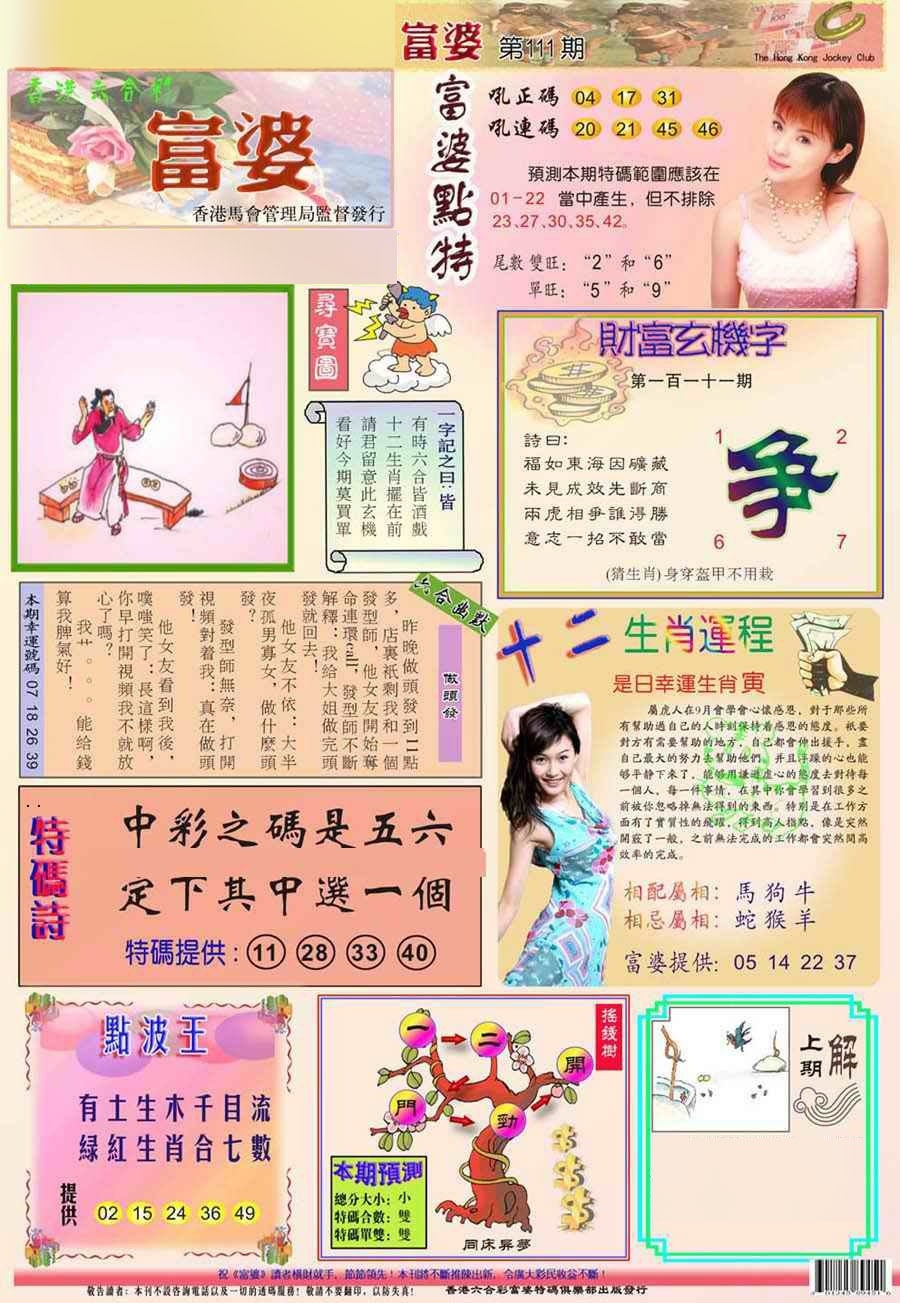 富婆 第111期
The Hong Kong Jockey Club
香港六合彩
富婆
香港馬會管理局監督發行
富婆點特
吼正碼 04 17 31
吼連碼 20 21 45 46
預測本期特碼範圍應該在
01-22 當中產生，但不排除
23、27、30、35、42。
尾數雙旺：“2”和“6”
單旺：“5”和“9”
尋寶圖
一字記之曰：皆
有時六合皆酒戲
十二生肖擺在前
請君留意此玄機
看好今期莫買單
財富玄機字
第一百一十一期
詩曰：
福如東海因礦藏
未見成效先斷商
兩虎相爭誰得勝
意志一招不敢當
1 2
爭
6 7
(猜生肖)身穿盔甲不用栽
六合幽默
做頭發
昨晚做頭發到11點
多，店裏衹剩我和一個
發型師，他女友開始奪
命連環call，發型師不斷
解釋：我給大姐做完頭
發就回去！
他女友不依：大半
夜孤男寡女，做什麼頭
發？
發型師無奈，打開
視頻對着我：真在做頭
發！
他女友看到我後，
噗嗤笑了：長這樣啊，
你早打開視頻我不就放
心了嗎？
我艹。。。能給錢
算我脾氣好！
本期幸運號碼 07 18 26 39
十二生肖運程
是日幸運生肖寅
屬虎人在9月會學會心懷感恩，對于那些所
有幫助過自己的人時刻保持着感恩的態度。衹要
對方有需要幫助的地方，自己都會伸出援手，盡
自己最大的努力去幫助他們，并且浮躁的心也能
够平静下來了，能够用謙遜虛心的態度去對待每
一個人，每一件事情，在其中你會學習到很多之
前被你忽略掉無法得到的東西。特別是在工作方
面有了實質性的飛躍，得到高人指點，像是突然
開竅了一般，之前無法完成的工作都會突然間高
效率的完成。
相配屬相：馬 狗 牛
相忌屬相：蛇 猴 羊
富婆提供：05 14 22 37
特碼詩
中彩之碼是五六
定下其中選一個
特碼提供：11 28 33 40
點波王
有土生木千目流
綠紅生肖合七數
提供 02 15 24 36 49
搖錢樹
一 二 開
門 勁
本期預測
總分大小：小
特碼合數：雙
特碼單雙：雙
同床异夢
上期解
祝《富婆》讀者橫財就手，節節領先！本刊將不斷推陳出新，令廣大彩民收益不斷！
敬告讀者：本刊不設咨詢電話以及一切的透碼服務！敬請不要翻印，以防失真！ 香港六合彩富婆特碼俱樂部出版發行